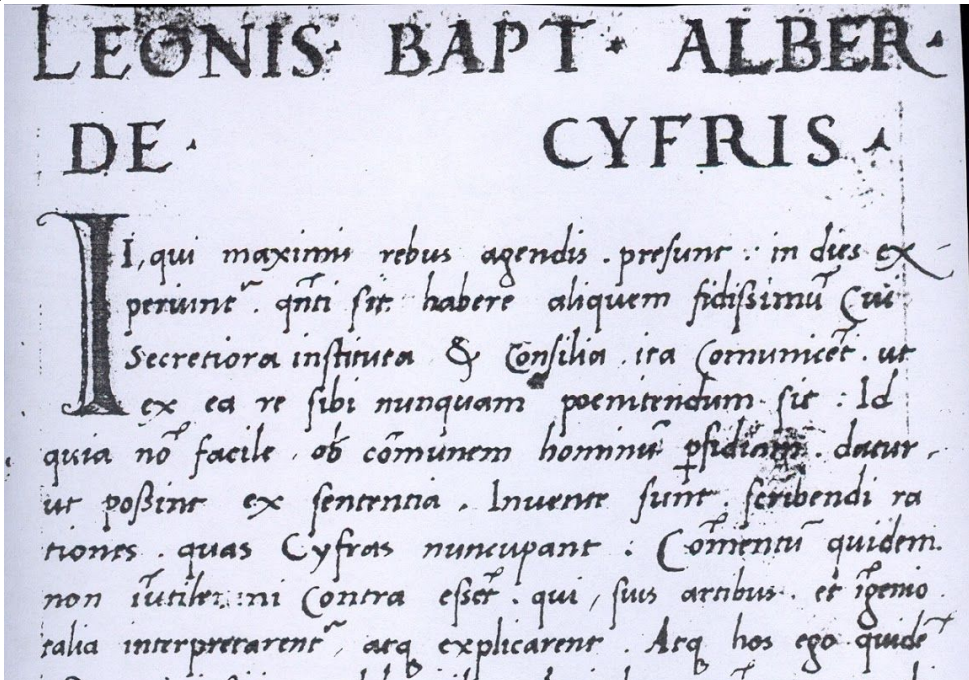 LEONIS· BAPT· ALBER·
DE· CYFRIS·
II, qui maximis rebus agendis . presunt : in dies ex-
periunt᷑. qñti sit habere aliquem fidissimũ Cui
Secretiora instituta & Consilia . ita Comunicēt . ut
ex ea re sibi nunquam poenitendum sit : Id
quia nõ facile . ob cõmunem hominũ ꝑfidiam . datur,
ut possint ex sententia . Invente sunt . scribendi ra
tiones . quas Cyfras nuncupant : Cõmentũ quidem.
non iũtile: ni Contra essēt . qui, suis artibus . et ĩgenio
talia interpretarent᷑, atq explicarent . Atq hos ego quidẽ